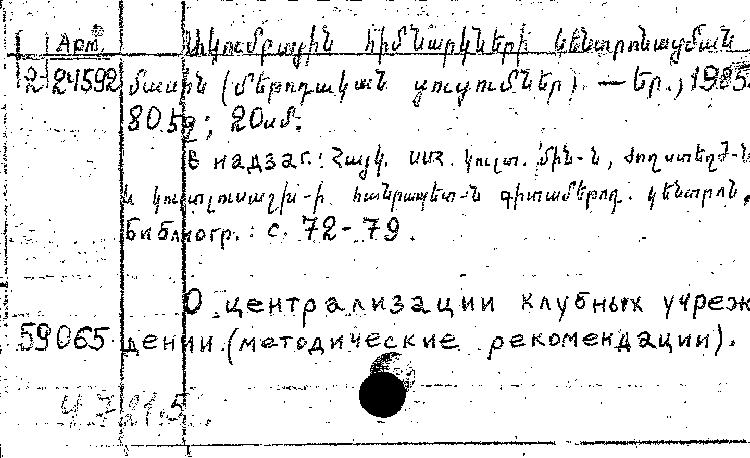 Арм. Ակումբային հիմնարկների կենտրոնացման
2-24592 մասին (մեթոդական ցուցումներ). — Եր., 1985.
80 էջ; 20 սմ.
В надзаг.: Հայկ. ՍՍՀ. կուլտ. մին-ն, ժող. ստեղծ-ն
և կուլտլուսաշխ-ի հանրապետ-ն գիտամեթոդ. կենտրոն.
Библиогр.: с. 72-79.
О централизации клубных учреж
59065 дении (методические рекомендации).
4.7 21.5